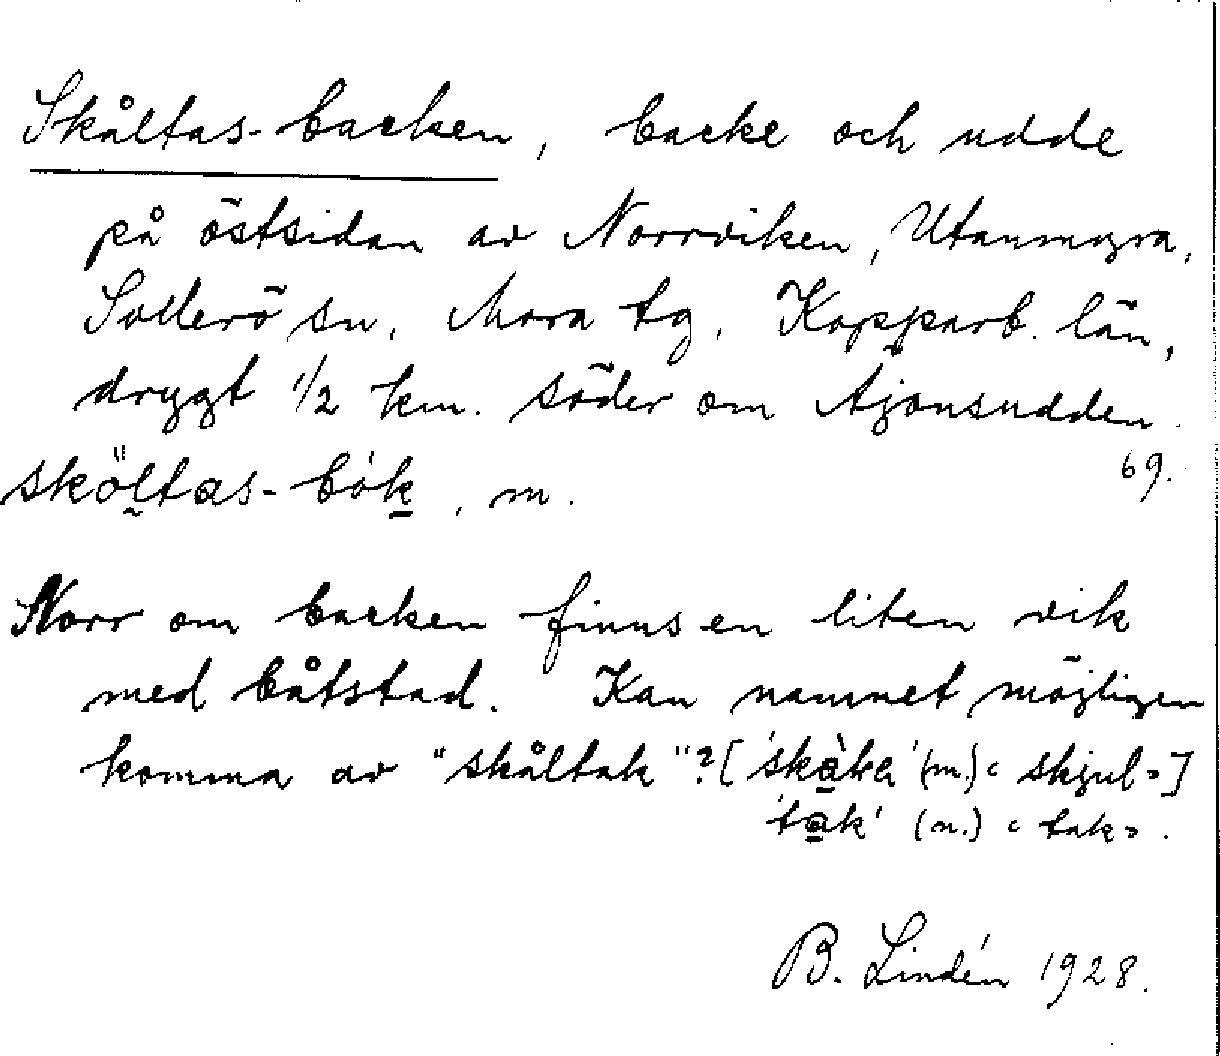 Skåltas-backen, backe och udde
på östsidan av Norrviken, Utanmyra,
Sollerö sn, Mora tg, Kopparb. län,
drygt 1/2 km. söder om Äjonsudden.
69.
sköltas-bók, m.
Norr om backen finns en liten vik
med båtstad. Kan namnet möjligen
komma av "skåltak"? [ (m.) < skjul>]
'tak' (n.) < tak>.
B. Lindén 1928.